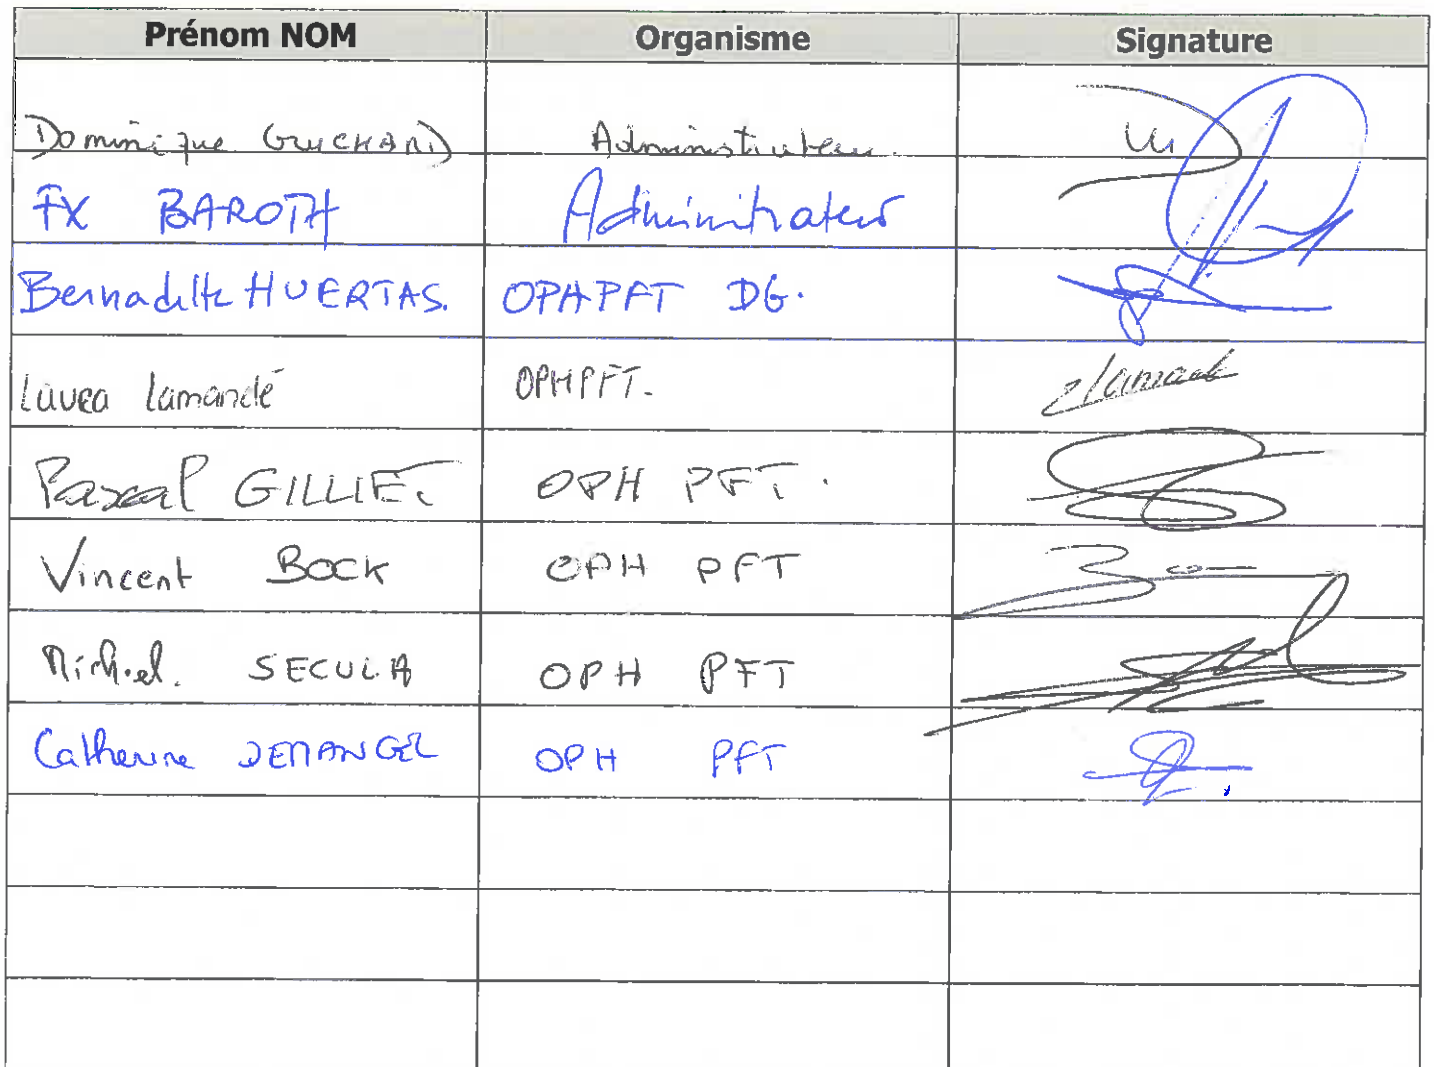 Prénom NOM Organisme Signature
Dominique GUICHARD Administrateur
FX BAROTH Administrateur
Bernadette HUERTAS. OPHPFT DG.
Laura Lamandé OPHPFT.
Pascal GILLIET OPH PFT.
Vincent BOCK OPH PFT
Michel. SECULA OPH PFT
Catherine DEMANGEL OPH PFT